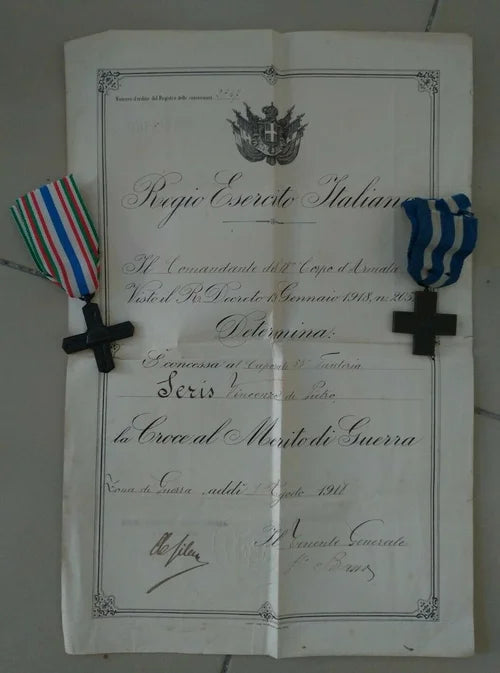 Numero d'ordine del Registro delle concessioni
Regio Esercito Italiano
Il Comandante del Corpo d'Armata
Visto il R. Decreto 19 Gennaio 1918, n. 205
Determina:
È concessa al Caporale Fanteria
Seris Vincenzo di Pietro
la Croce al Merito di Guerra
Zona di Guerra, addì Agosto 1918
Il Tenente Generale